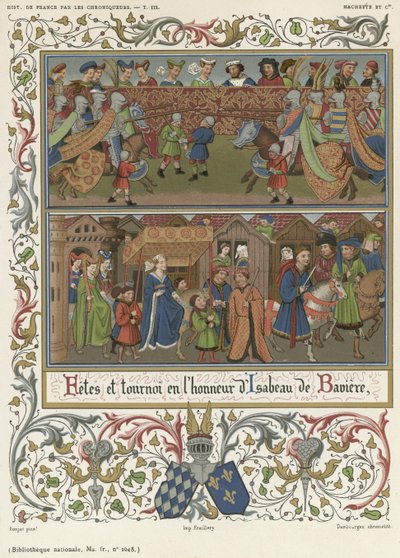 HIST. DE FRANCE PAR LES CHRONIQUEURS. — T. III.
HACHETTE ET Cie.
Fêtes et tournoi en l'honneur d'Isabeau de Bavière.
Imp. Fraillery
Dambourgez chromolith.
(Bibliothèque nationale, Ms. fr., n° 2648.)